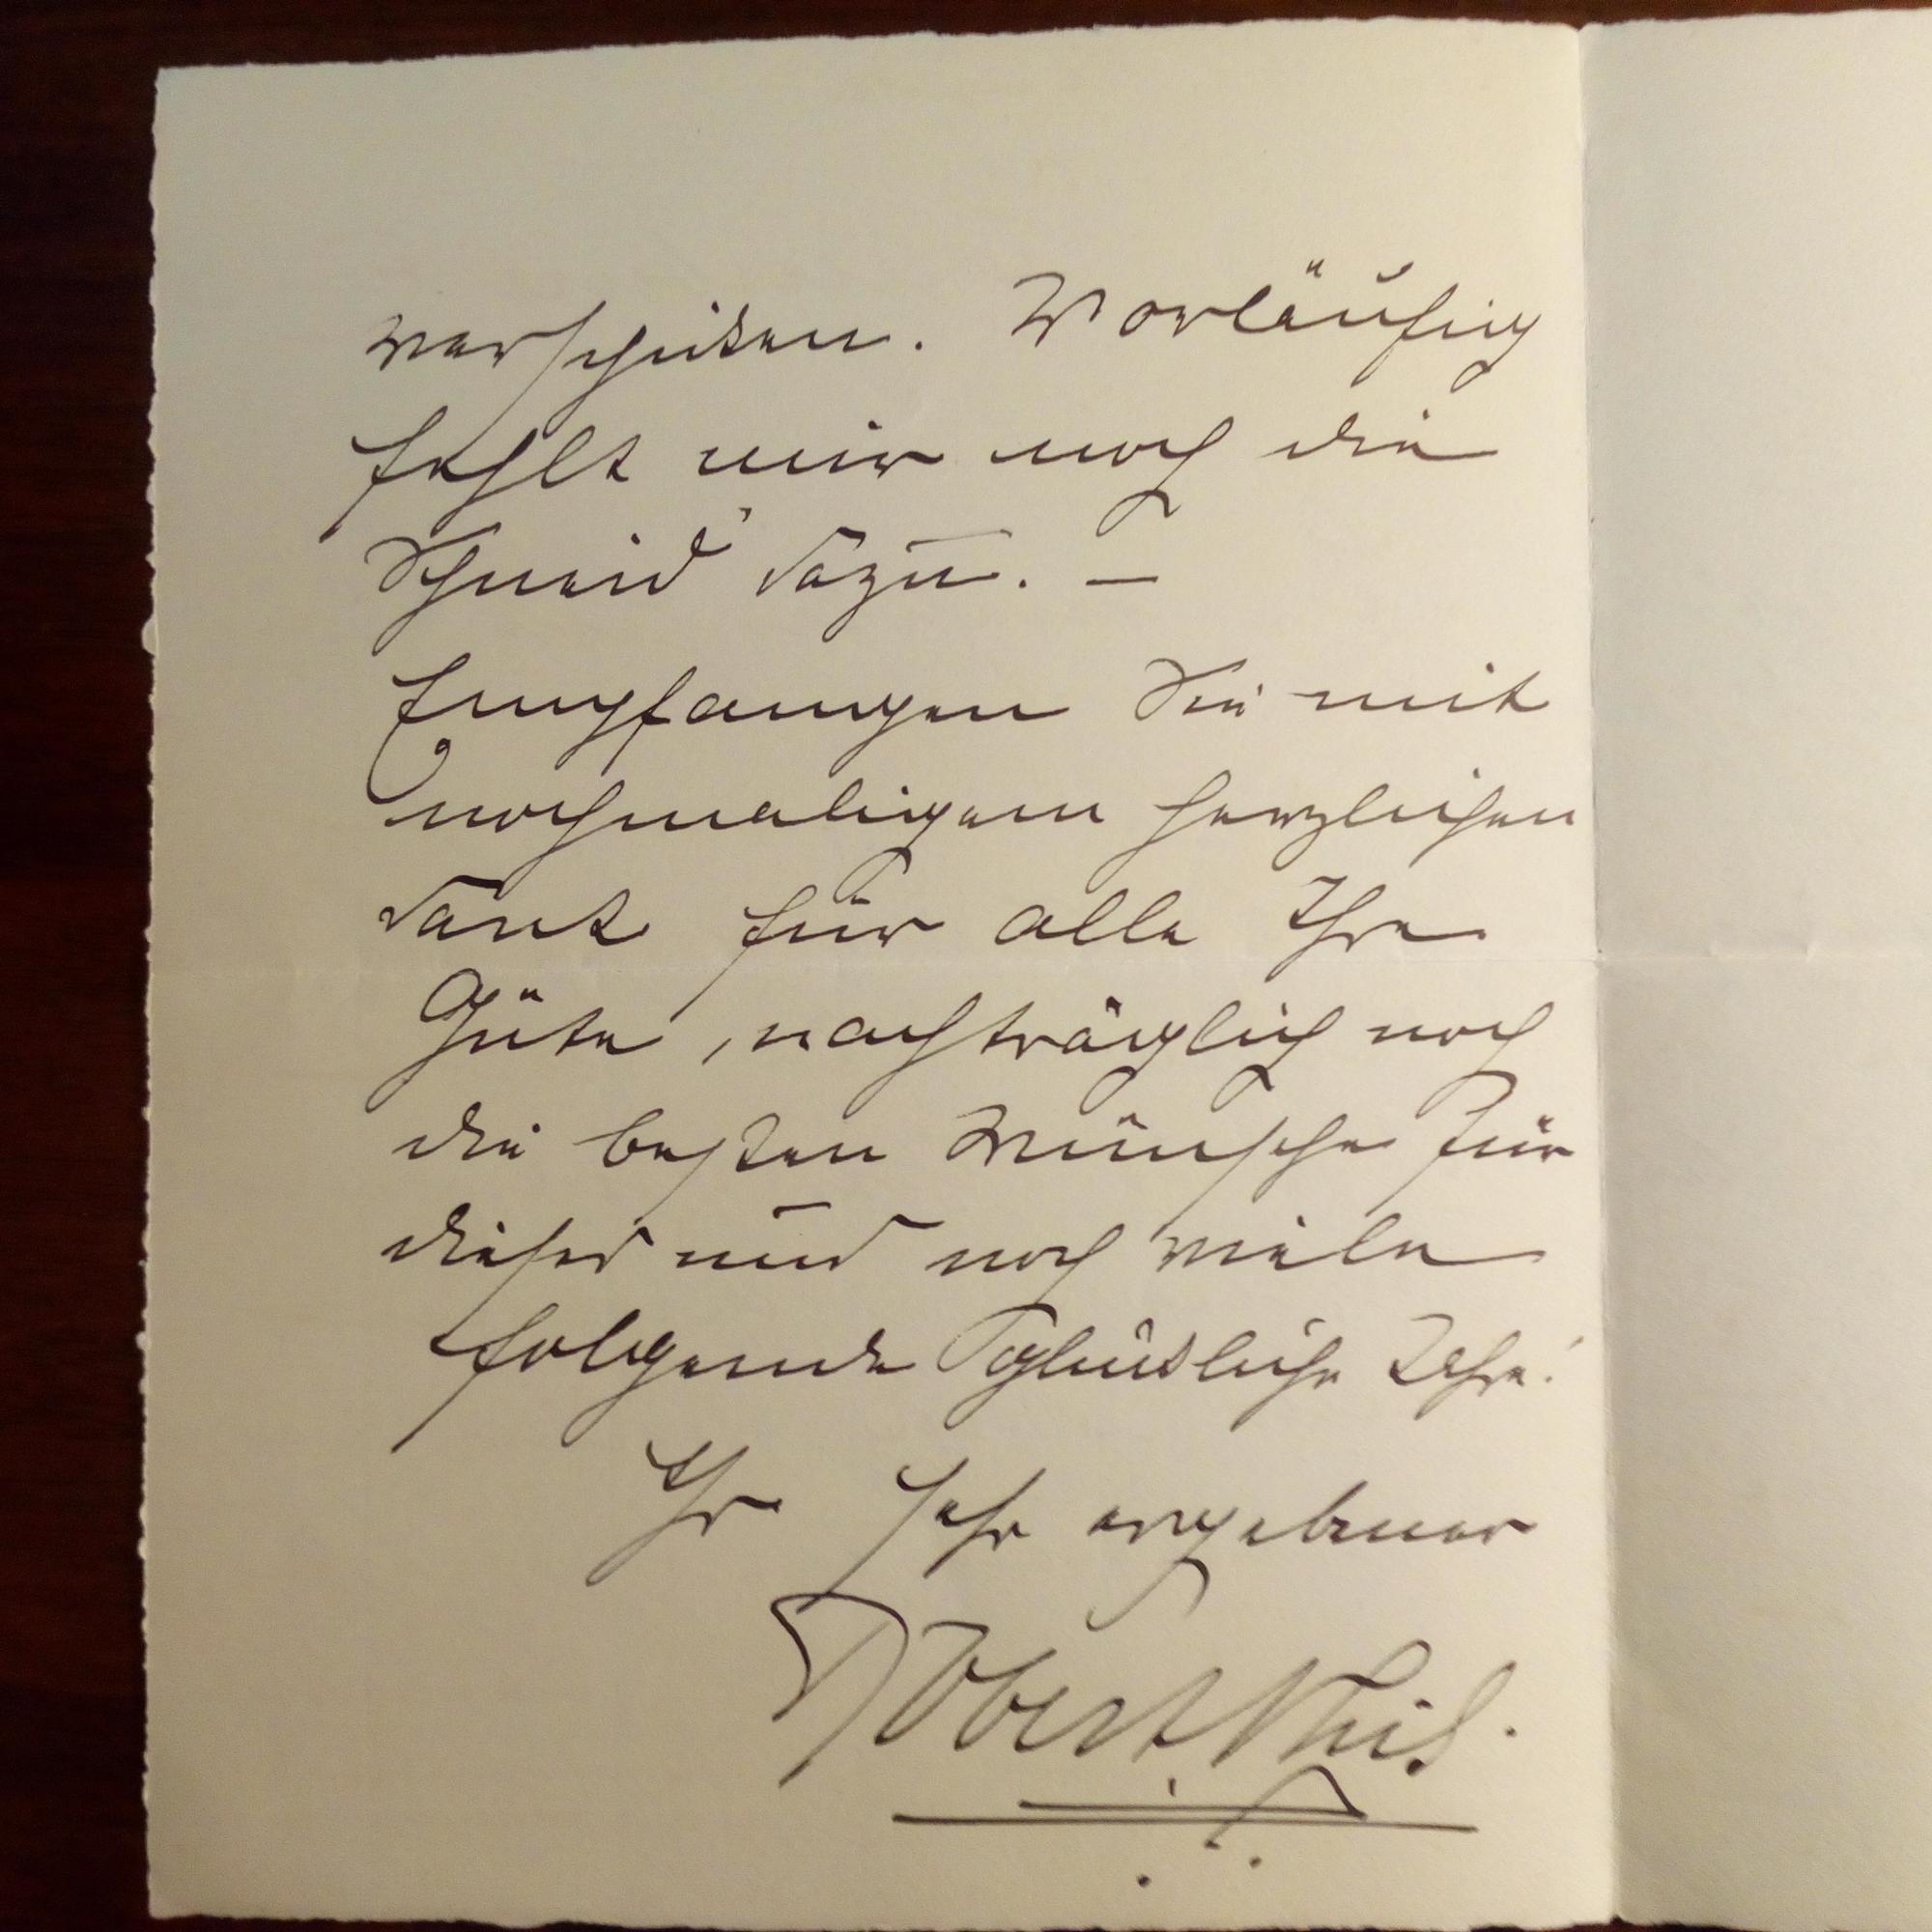 verschicken. Vorläufig
fehlt mir noch die
"Schneid" dazu. —
Empfangen Sie mit
nochmaligem herzlichen
Dank für alle Ihre
Güte, nachträglich noch
die besten Wünsche für
dieses und noch viele
folgende glückliche Jahre!
Ihr sehr ergebener
Robert